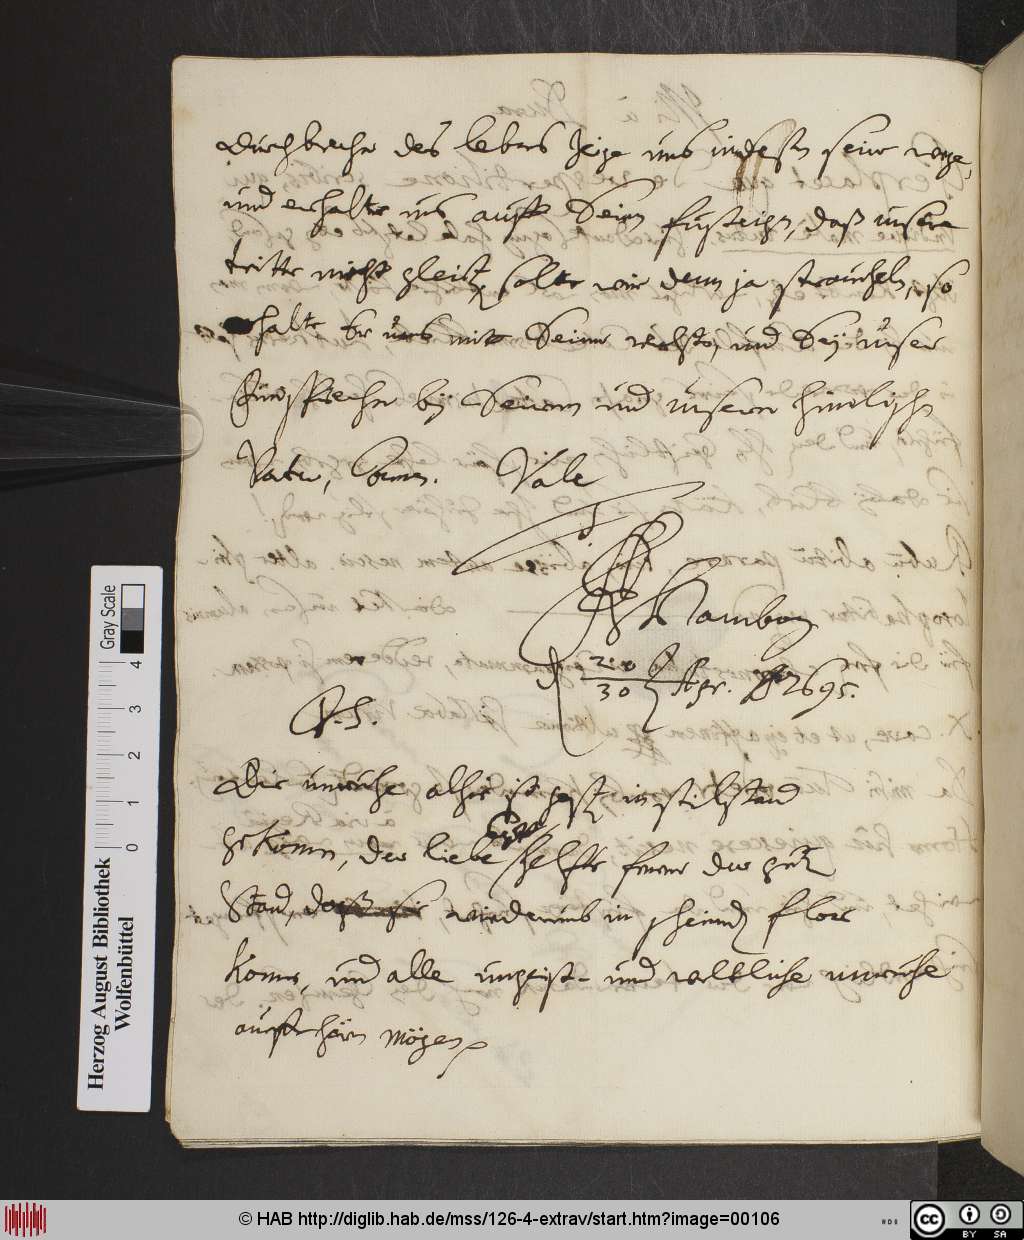 des lebens Zeige uns indeßen seine wege,
und erhalte uns auff Seinen fußsteigen, daß unsere
tritte nicht gleiten, solten wir denn ja straucheln, so
halte Er uns mit Seiner rechten, und Sey unser
Fürsprecher bey Seinem und unsern himlischen
Vater, Amen. Vale
20
30 Apr. 1695.
P.S.
Die unruhe alhie ist jetzt in stilstand
gekommen, der liebe Gott helffe ferner der gute
Stand, wiederumb in flor
komme, und alle ungeist- und weltliche unruhe
auffhören mögen
Herzog August Bibliothek
Wolfenbüttel
Gray Scale
0 1 2 3 4
© HAB http://diglib.hab.de/mss/126-4-extrav/start.htm?image=00106
cc BY SA